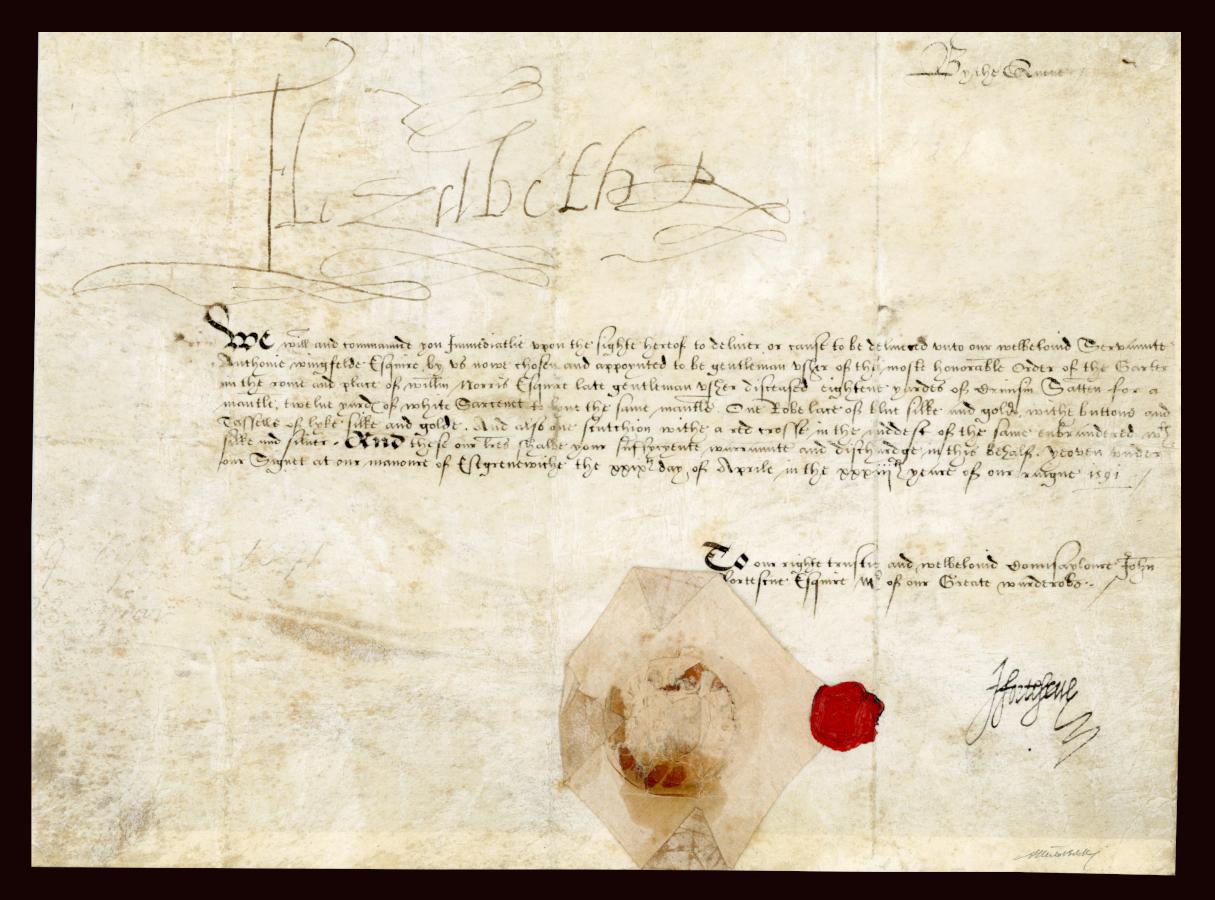 By the Quene
Elizabeth R
We will and commaunde you Immediatlie vpon the sighte hereof to deliuer or cause to be deliuered vnto our welbeloued Servaunte
Anthonie wingfelde Esquire, by vs nowe chosen and appoynted to be gentleman vsher of the moste honorable Order of the Garter
in the rome and place of willm Norris Esquire late gentleman vsher disceased eightene yardes of Crimsin Satten for a
mantle, twelue yardes of white Sarcenet to lyne the same mantle. One Robe lace of blue silke and golde, withe buttons and
Tasselles of lyke silke and golde. And also one scutchion withe a red crosse in the middest of the same enbraudered wth
silke and siluer. And these our lres shalbe your suffycyente warraunte and dischardge in this behalf. yeoven vnder
our Signet at our manoure of Estgrenewiche the xxixth day of Aprile in the xxxiijth yeare of our raigne 1591
To our right trustie and welbeloued Counsaylour John
fortescue Esquire Mr of our Greate warderobe.
Jfortescue